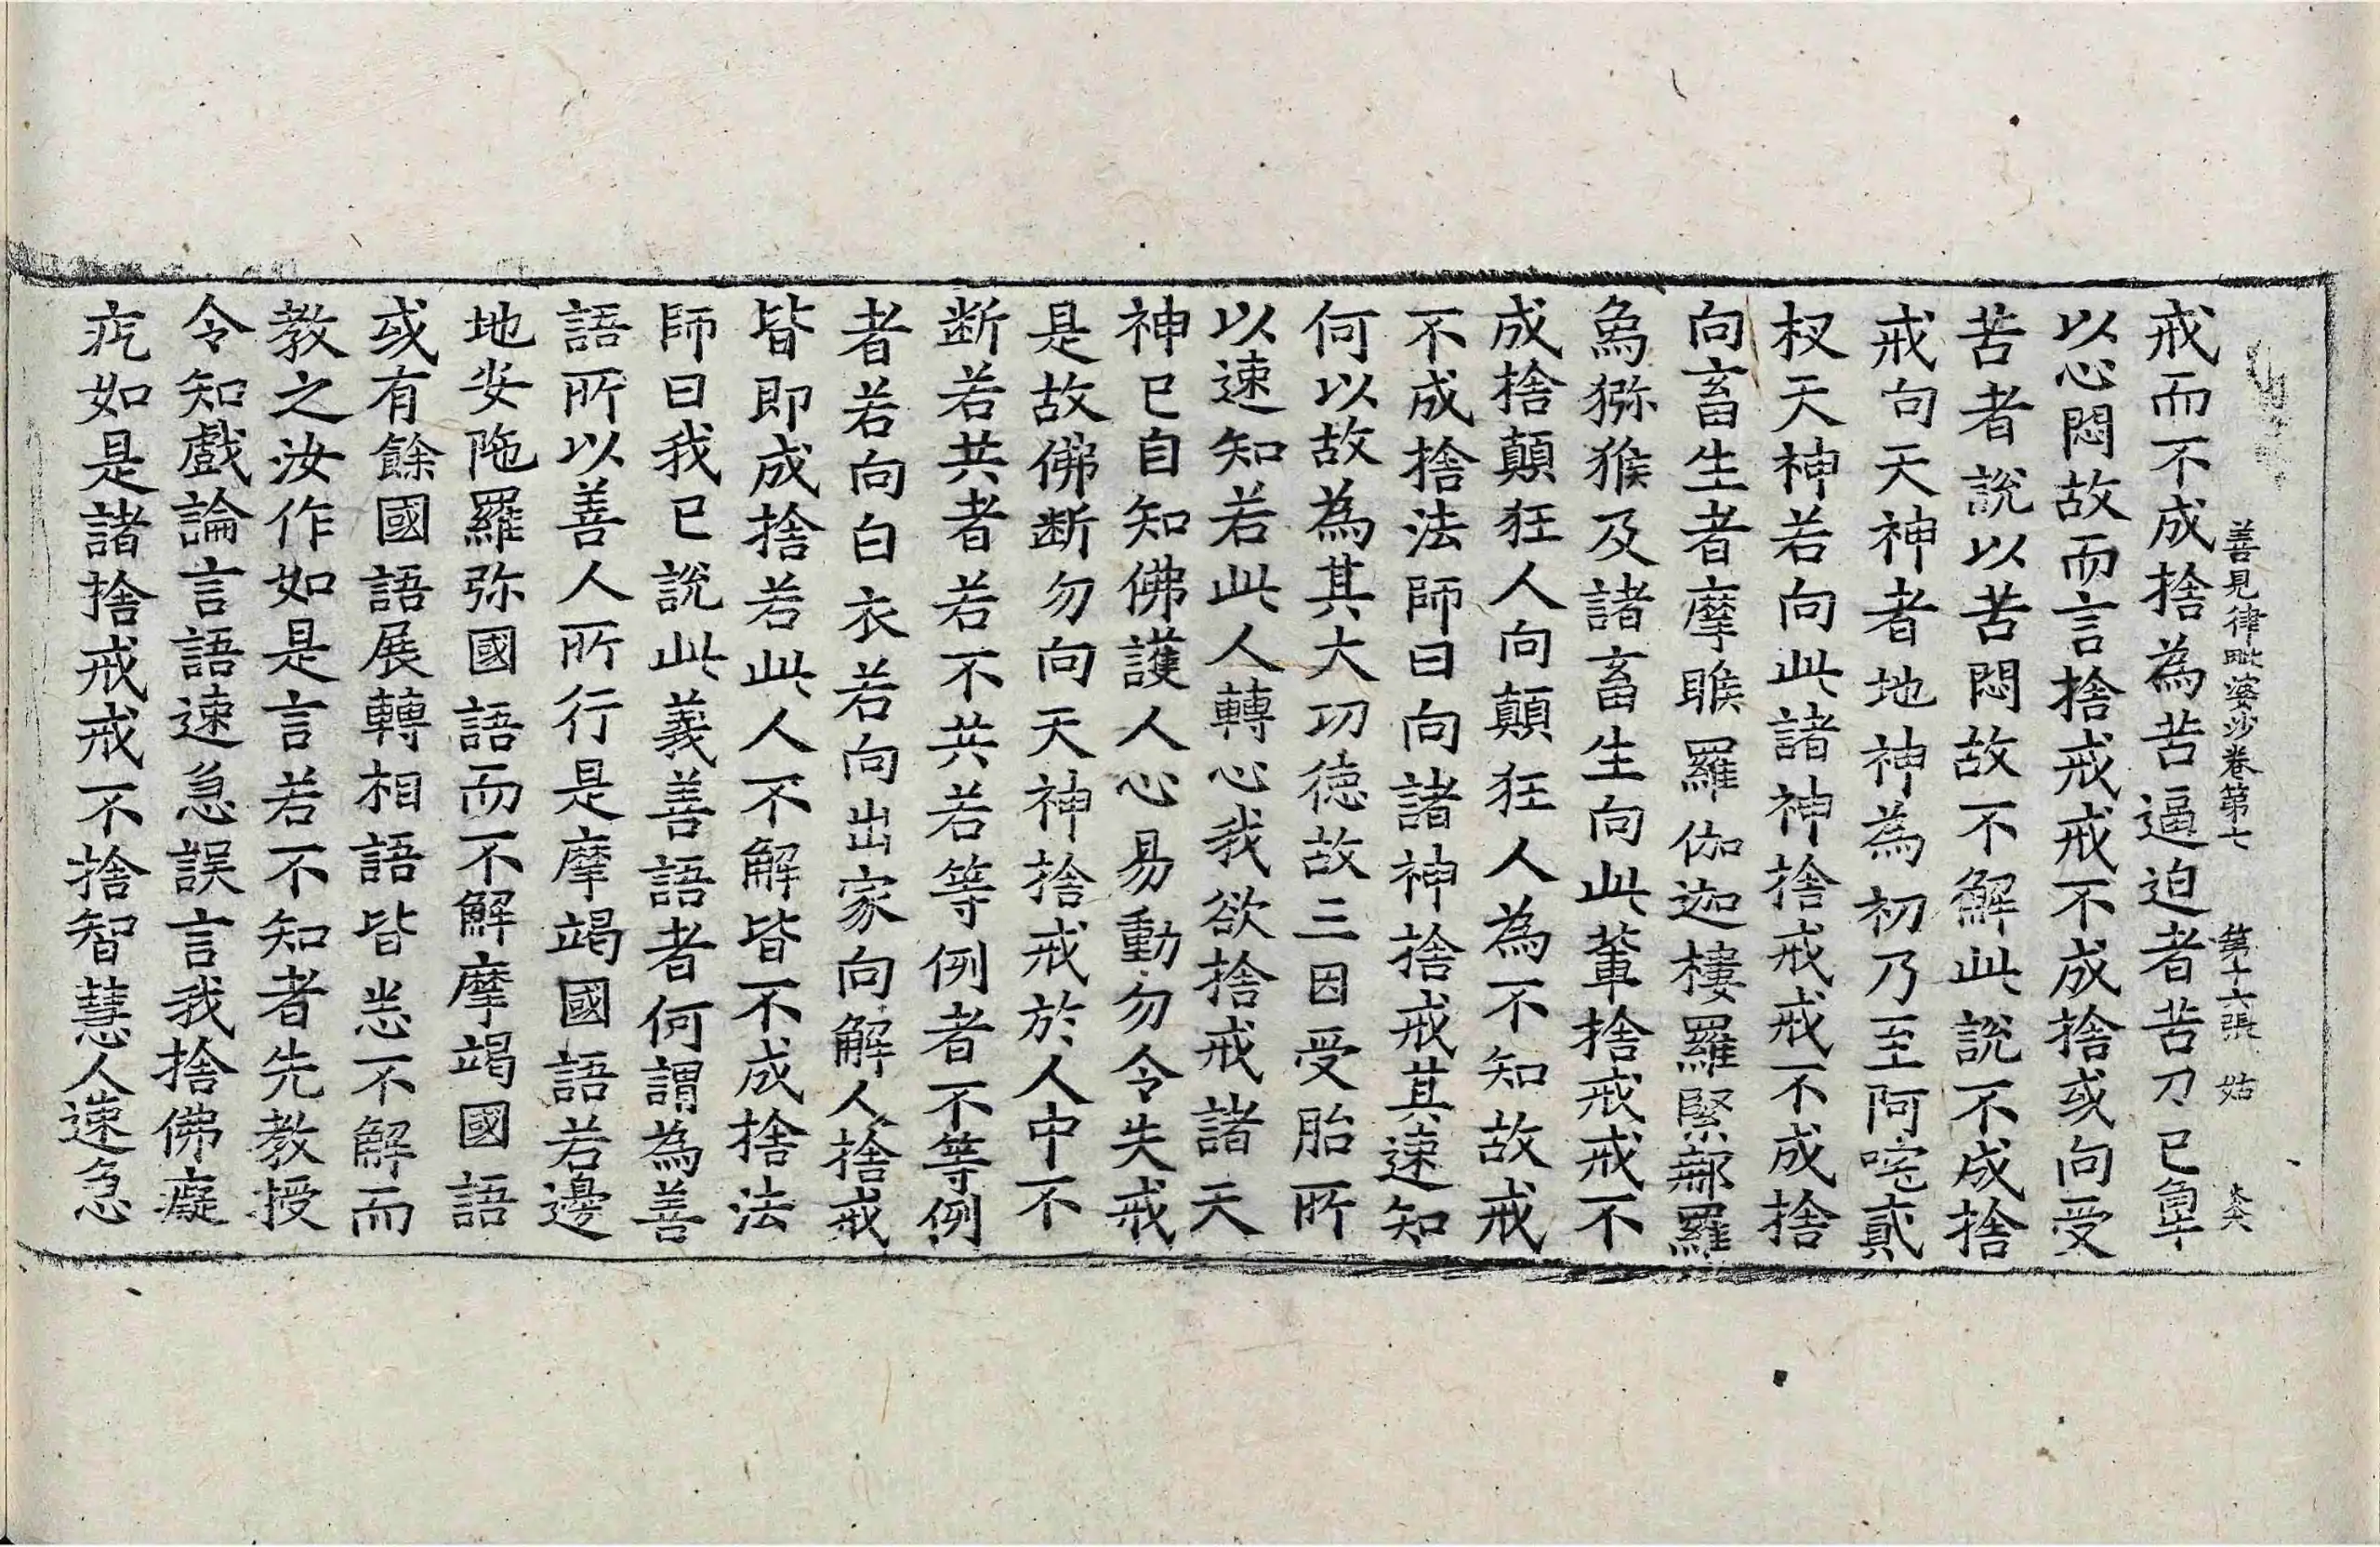 善見律毗婆沙卷第七 第十六張 姑
戒而不成捨為苦逼迫者苦刀已
以心悶故而言捨戒戒不成捨或向受
苦者說以苦悶故不解此說不成捨
戒向天神者地神為初乃至阿咤貳
杈天神若向此諸神捨戒戒不成捨
向畜生者摩睺羅伽迦樓羅緊那羅
為猕猴及諸畜生向此輩捨戒戒不
成捨顛狂人向顛狂人為不知故戒
不成捨法師曰向諸神捨戒其速知
何以故為其大功德故三因受胎所
以速知若此人轉心我欲捨戒諸天
神已自知佛護人心易動勿令失戒
是故佛断勿向天神捨戒於人中不
断若共者若不共若等例者不等例
者若向白衣若向出家向解人捨戒
皆即成捨若此人不解皆不成捨法
師曰我已說此義善語者何謂為善
語所以善人所行是摩竭國語若邊
地安陁羅弥國語而不解摩竭國語
或有餘國語展轉相語皆悉不解而
教之汝作如是言若不知者先教授
令知戲論言語速急誤言我捨佛癡
疙如是諸捨戒戒不捨智慧人速急